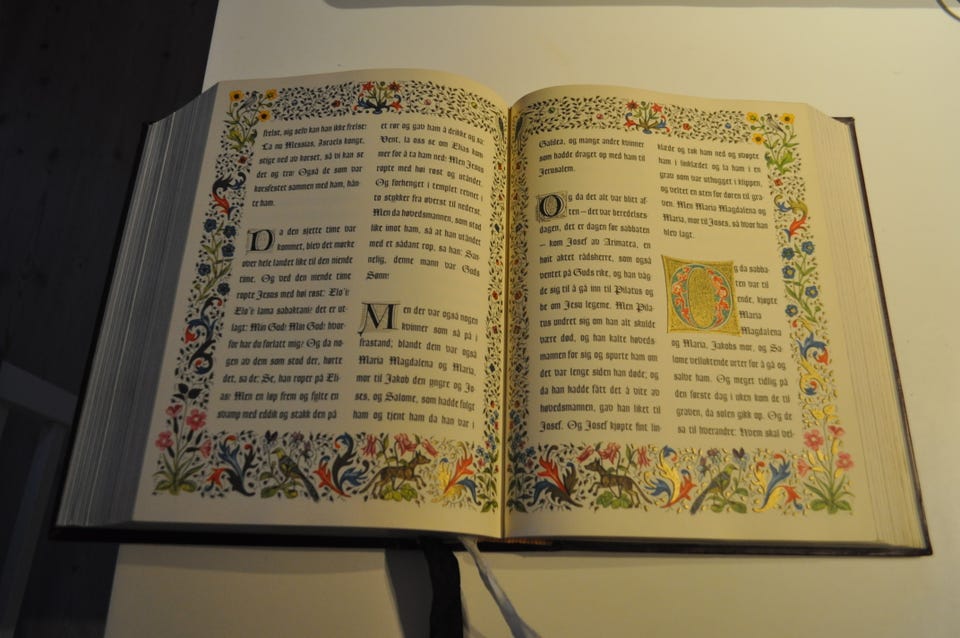 frelse, sig selv kan han ikke frelse!
La nu Messias, Israels konge,
stige ned av korset, så vi kan se
det og tro! Også de som var
korsfestet sammen med ham, hån-
te ham.
Da den sjette time var
kommet, blev det mørke
over hele landet like til den niende
time. Og ved den niende time
ropte Jesus med høi røst: Elo'i!
Elo'i! lama sabaktani? det er ut-
lagt: Min Gud! Min Gud! hvor-
for har du forlatt mig? Og da no-
gen av dem som stod der, hørte
det, sa de: Se, han roper på Eli-
as! Men en løp frem og fylte en
svamp med eddik og stakk den på
et rør og gav ham å drikke og sa:
Vent, la oss se om Elias kom-
mer for å ta ham ned! Men Jesus
ropte med høi røst og utåndet.
Og forhenget i templet revnet i
to stykker fra øverst til nederst.
Men da høvedsmannen, som stod
like imot ham, så at han utåndet
med et sådant rop, sa han: San-
nelig, denne mann var Guds
Sønn!
Men der var også nogen
kvinner som så på i
frastand; blandt dem var også
Maria Magdalena og Maria,
mor til Jakob den yngre og Jo-
ses, og Salome, som hadde fulgt
ham og tjent ham da han var i
Galilea, og mange andre kvinner
som hadde draget op med ham til
Jerusalem.
Og da det alt var blitt af-
ten – det var beredelses
dagen, det er dagen før sabbaten
– kom Josef av Arimatea, en
høit aktet rådsherre, som også
ventet på Guds rike, og han våg-
de sig til å gå inn til Pilatus og
be om Jesu legeme. Men Pila-
tus undret sig om han alt skulde
være død, og han kalte høveds-
mannen for sig og spurte ham om
det var lenge siden han døde; og
da han hadde fått det å vite av
høvedsmannen, gav han liket til
Josef. Og Josef kjøpte fint lin-
klæde og tok ham ned og svøpte
ham i linklædet og la ham i en
grav som var uthugget i klippen,
og veltet en sten for døren til gra-
ven. Men Maria Magdalena og
Maria, mor til Joses, så hvor han
blev lagt.
Og da sabba-
ten var til
ende, kjøpte
Maria
Magdalena
og Maria, Jakobs mor, og Sa-
lome velluktende urter for å gå og
salve ham. Og meget tidlig på
den første dag i uken kom de til
graven, da solen gikk op. Og de
sa til hverandre: Hvem skal vel-